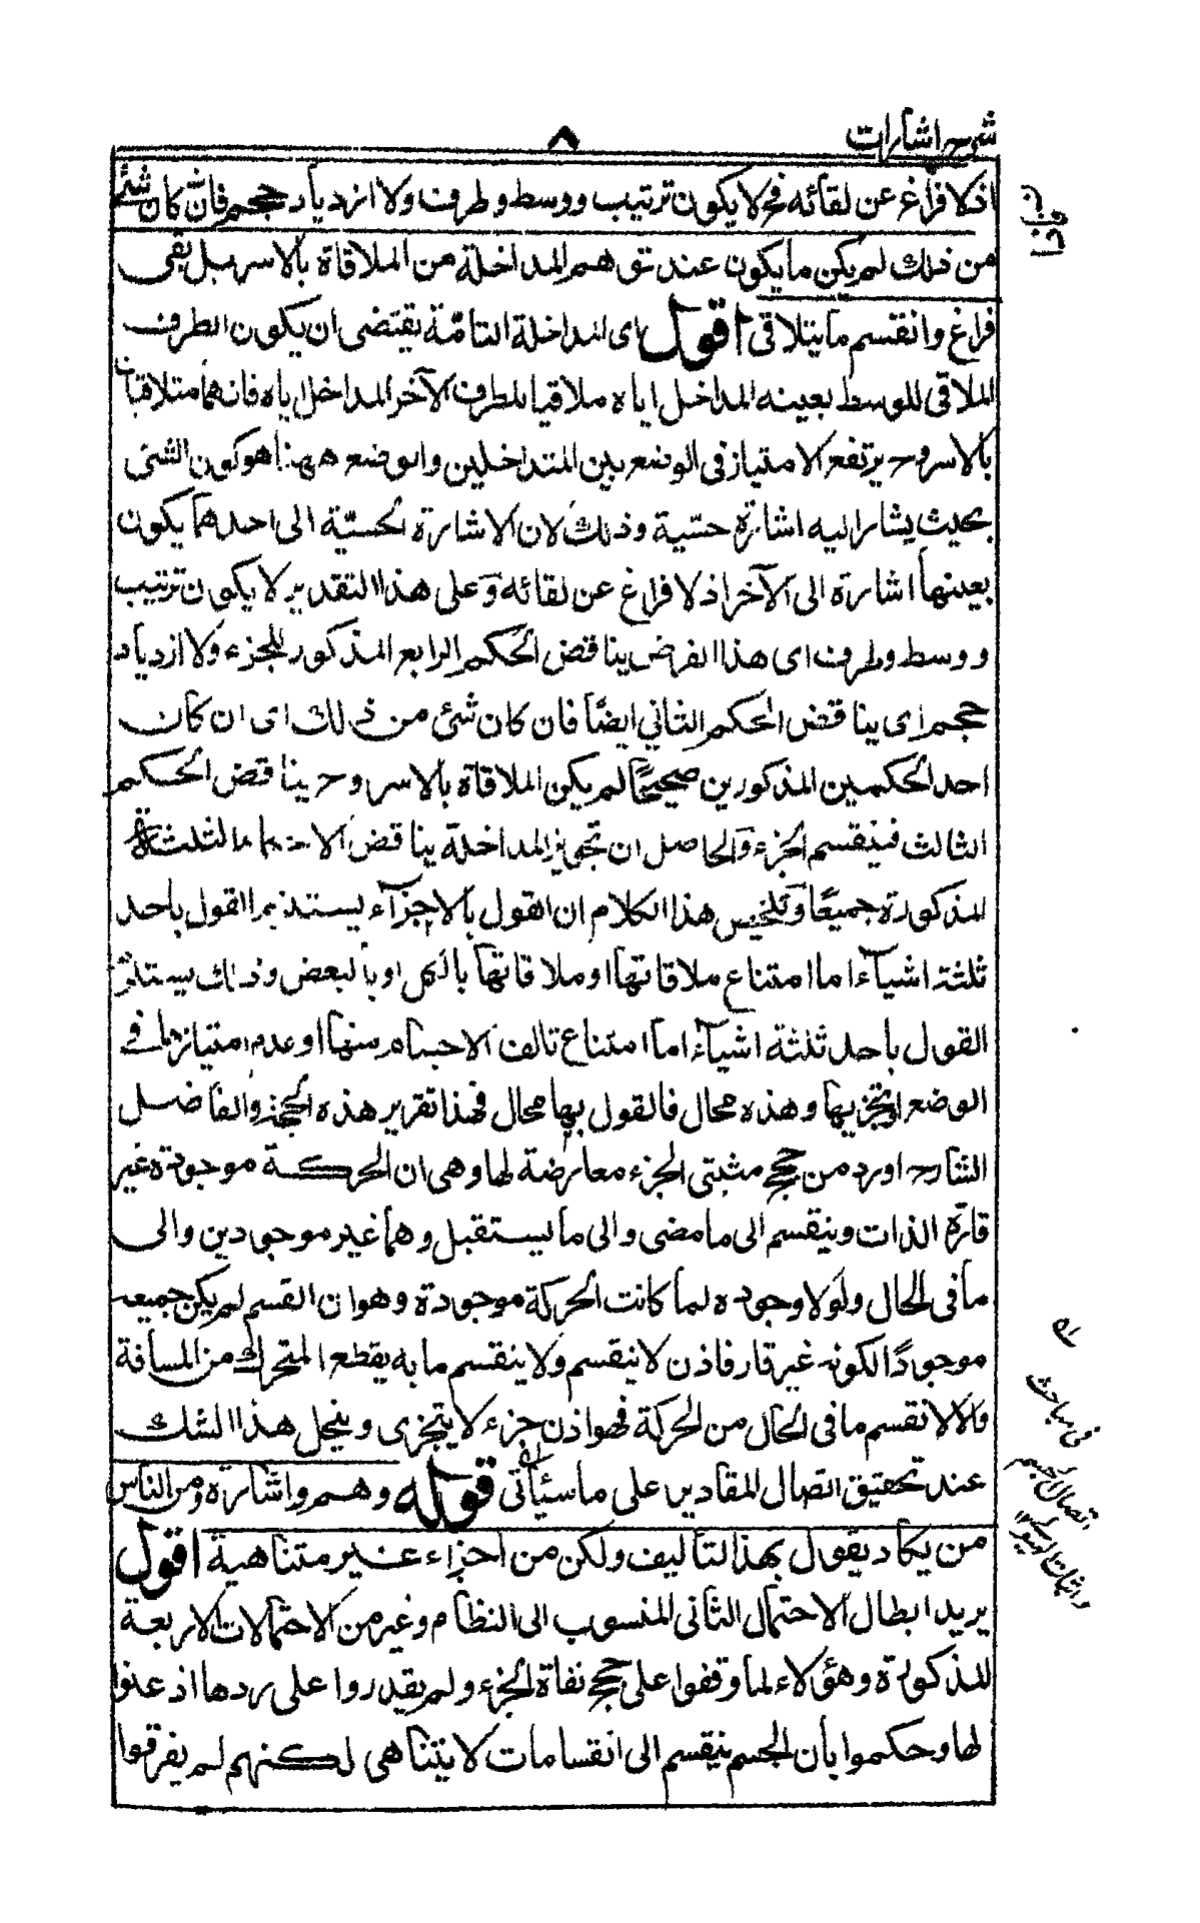 شرح اشارات
٨
اذ لا فراغ عن لقائه فح لا يكون ترتيب ووسط وطرف ولا ازدياد حجم فان كان شئ
من ذلك لم يكن ما يكون عند توهم المداخلة من الملاقاة بالاسر بل بقى
فراغ وانقسم ما يتلاقى اقول اى المداخلة التامّة يقتضى ان يكون الطرف
الملاقى للوسط بعينه المداخل اياه ملاقيا للطرف الآخر المداخل اياه فانهما متلاقيان
بالاسر وح يرتفع الامتياز فى الوضع بين المتداخلين والوضع ههنا هو كون الشئ
بحيث يشار اليه اشارة حسّية وذلك لان الاشارة الحسيّة الى احدهما يكون
بعينها اشارة الى الآخر اذ لا فراغ عن لقائه وعلى هذا التقدير لا يكون ترتيب
ووسط وطرف اى هذا الفرض يناقض الحكم الرابع المذكور للجزء ولا ازدياد
حجم اى يناقض الحكم الثاني ايضًا فان كان شئ من ذلك اى ان كان
احد الحكمين المذكورين صحيحًا لم يكن الملاقاة بالاسر وح يناقض الحكم
الثالث فينقسم الجزء والحاصل ان تجويز المداخلة يناقض الاحكام الثلثة
المذكورة جميعًا وتلخيص هذا الكلام ان القول بالاجزآء يستلزم القول باحد
ثلثة اشيآء اما امتناع ملاقاتها او ملاقاتها بالكل او بالبعض وذلك يستلزم
القول باحد ثلثة اشيآء اما امتناع تالف الاجسام منها او عدم امتيازها فى
الوضع او تجزيها وهذه محال فالقول بها محال فهذا تقرير هذه الحجة والفاضل
الشارح اورد من حجج مثبتى الجزء معارضة لها وهى ان الحركة موجودة غير
قارّة الذات وينقسم الى ما مضى والى ما يستقبل وهما غير موجودين والى
ما فى الحال ولولا وجوده لما كانت الحركة موجودة وهو ان القسم لم يكن جميعه
موجودًا لكونه غير قار فاذن لا ينقسم ولا ينقسم ما به يقطع المتحرك من المسافة
والالانقسم ما فى الحال من الحركة فهو اذن جزء لا يتجزى وينحل هذا الشك
عند تحقيق اتصال المقادير على ما سيأتى قوله وهم واشارة ومن الناس
من يكاد يقول بهذا لتأليف ولكن من اجزاء غير متناهية اقول
يريد ابطال الاحتمال الثانى المنسوب الى النظام وغيره من الاحتمالات الاربعة
المذكورة وهؤلاء لما وقفوا على حجج نفاة الجزء ولم يقدروا على ردها اذعنوا
لها وحكموا بأن الجسم ينقسم الى انقسامات لا يتناهى لكنهم لم يفرقوا
فى مباحث
اتصال الجسم
واثبات الهيولى